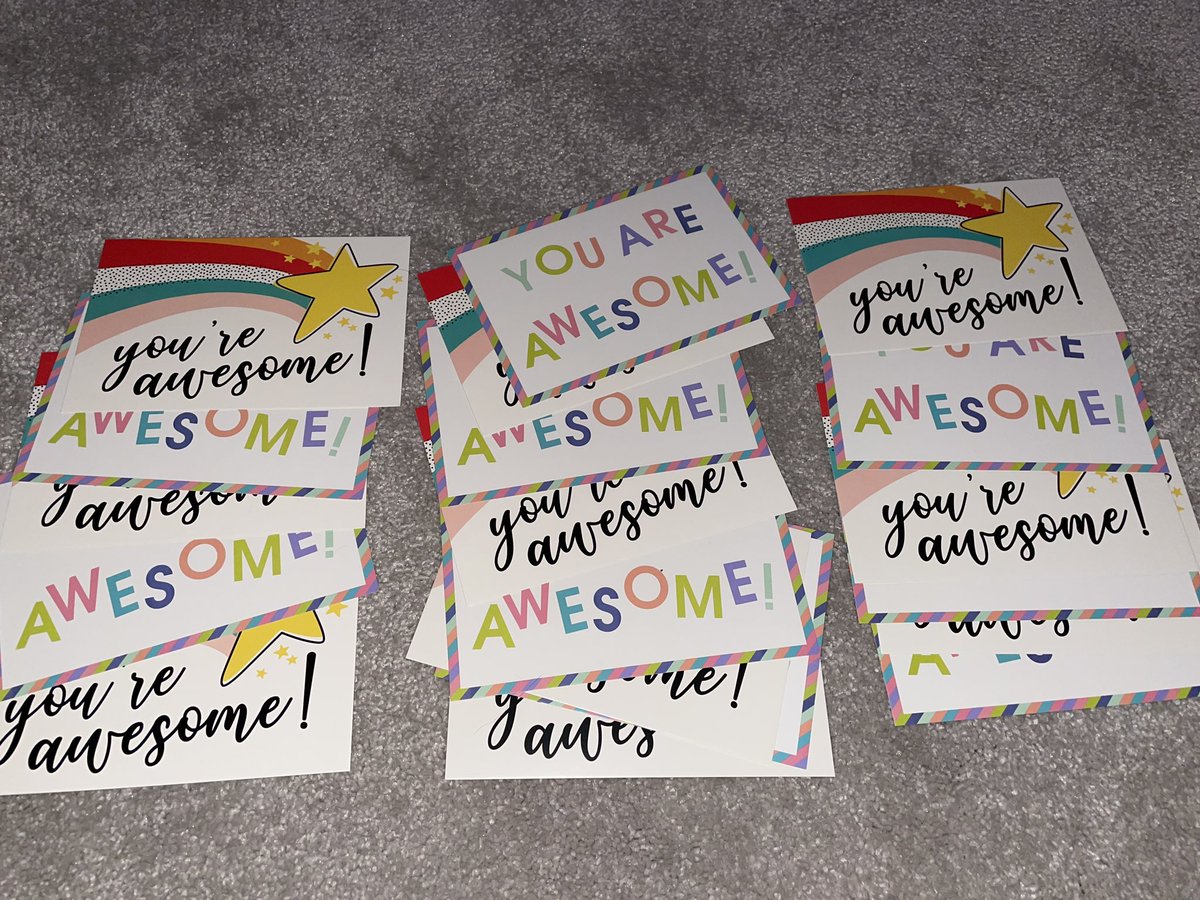 you're
awesome!
AWESOME!
awesome!
AWESOME!
you're
awesome!
YOU ARE
AWESOME!
AWESOME!
you're
awesome!
AWESOME!
awesome!
you're
awesome!
YOU ARE
AWESOME!
you're
awesome!